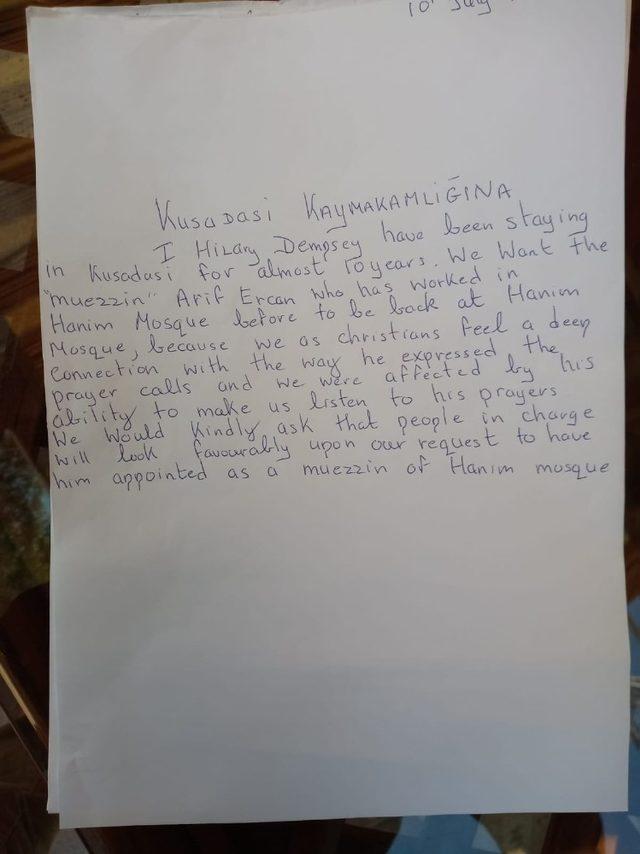 10 July
KUSADASI KAYMAKAMLIĞINA
I Hilary Dempsey have been staying
in Kusadasi for almost 10 years. We Want The
"muezzin" Arif Ercan who has worked in
Hanim Mosque before to be back at Hanim
Mosque, because we as christians feel a deep
connection with the way he expressed the
prayer calls and we were affected by his
ability to make us listen to his prayers
We Would kindly ask that people in charge
will look favourably upon our request to have
him appointed as a muezzin of Hanim mosque